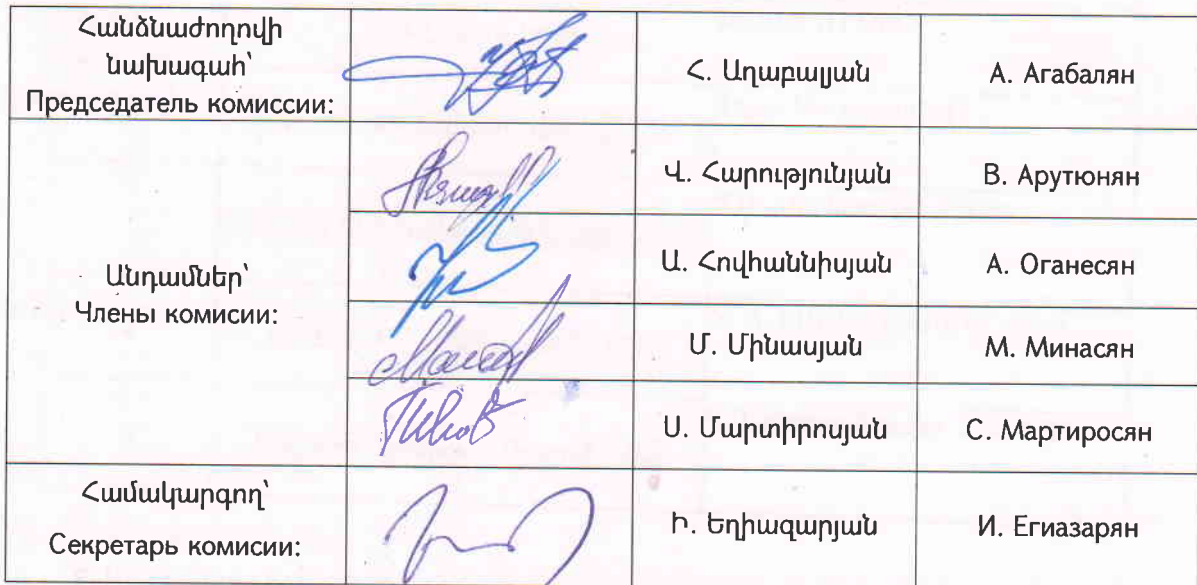 Հանձնաժողովի
նախագահ՝
Председатель комиссии:
Հ. Աղաբալյան
А. Агабалян
Անդամներ՝
Члены комисии:
Վ. Հարությունյան
В. Арутюнян
Ա. Հովհաննիսյան
А. Оганесян
Մ. Մինասյան
М. Минасян
Ս. Մարտիրոսյան
С. Мартиросян
Համակարգող՝
Секретарь комисии:
Ի. Եղիազարյան
И. Егиазарян